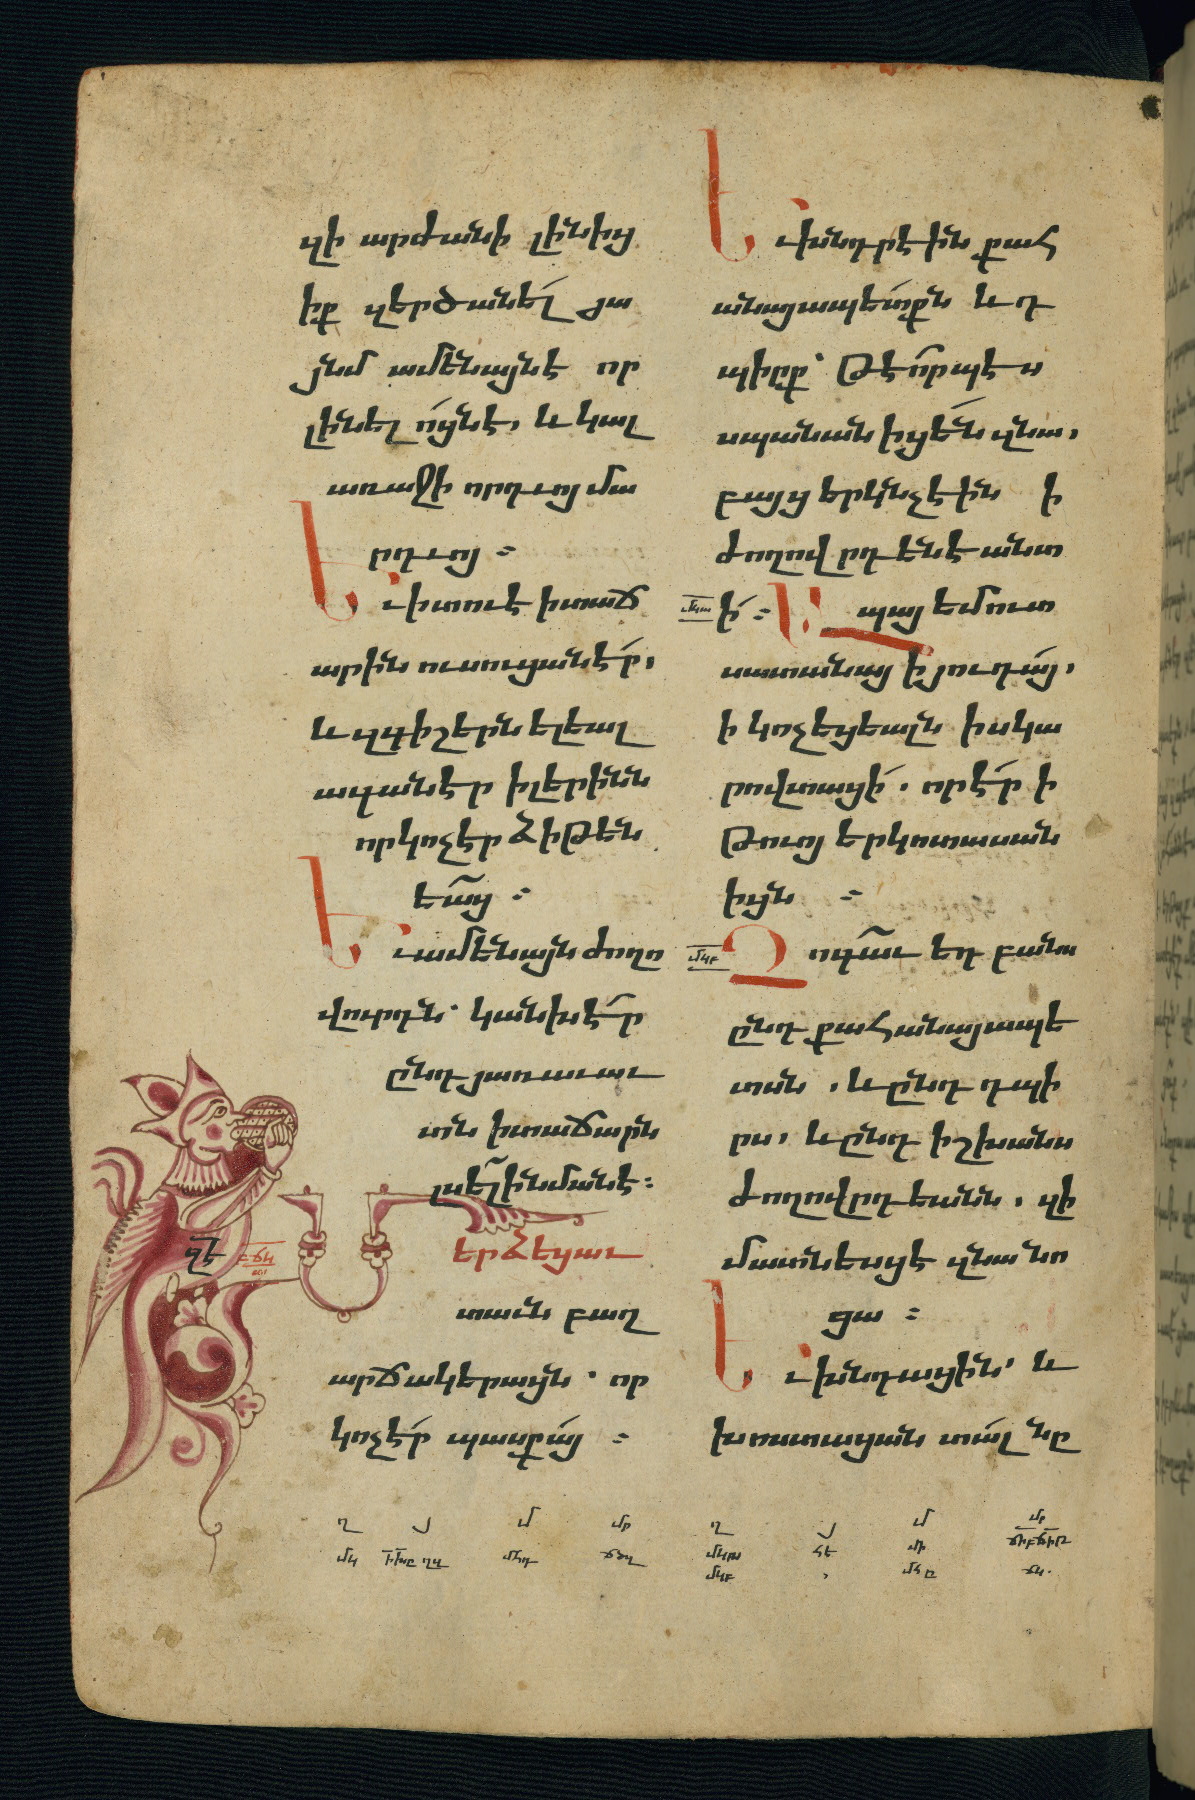 զի արժանի լինից
իք զերծանել յա
յնմ ամենայնէ որ
լինելոյնէ, և կալ
առաջի որդւոյ մա
րդւոյ։
Եւ ի տուէ ի տաճ
արին ուսուցանէր,
և զգիշերն ելեալ
ագանէր ի լերինն
որ կոչէր Ձիթեն
եաց։
Եւ ամենայն ժողո
վուրդն՝ կանխէր
ընդ յառաւաւ
տն ի տաճարն
լսել ի նմանէ։
զէ
Մերձեցաւ
տաւն բաղ
արճակերացն՝ որ
կոչէր պասքայ։
Եւ խնդրէին քահ
անայապետքն և դ
պիրք՝ թէ որպէս
սպանանիցեն զնա,
բայց երկնչէին ի
ժողովրդենէ անտ
մկա
ի։ Ապա եմուտ
սատանայ ի յուդայ,
ի կոչեցեալն իսկա
րովտացի, որ էր ի
թուոյ երկոտասան
իցն։
մկբ
Չոգաւ եդ բանս
ընդ քահանայապե
տսն, և ընդ դպի
րս, և ընդ իշխանս
ժողովրդեանն, զի
մատնեսցէ զնա նո
ցա։
Եւ խնդացին՝ և
խոստացան տալ նը
ղ յ մ մր ղ յ մ մր